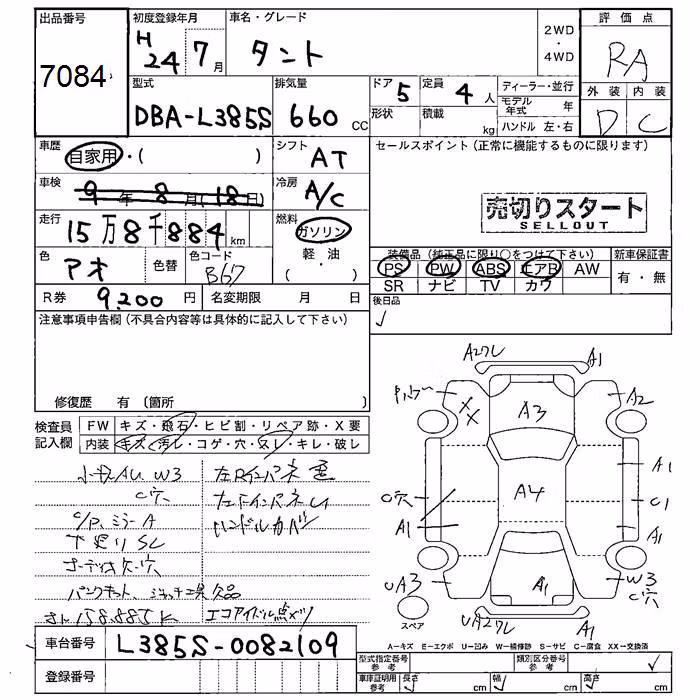 出品番号 初度登録年月 車名・グレード 2WD・4WD 評価点
7084 H24 7月 タント RA
型式 排気量 ドア 5 定員 4人 ディーラー・並行 外装 内装
DBA-L385S 660 CC 形状 積載 kg モデル年式 年 D C
ハンドル 左・右
車歴 自家用・( ) シフト AT セールスポイント（正常に機能するものに限ります）
車検 9年8月(18日) 冷房 A/C 売切りスタート
SELLOUT
走行 15万8千884km 燃料 ガソリン
軽・油
( )
色 アオ 色替 色コード B67 装備品（純正品に限り○をつけて下さい） 新車保証書
PS PW ABS エアB AW 有・無
SR ナビ TV カワ
R券 9,200円 名変期限 月 日 後日品
注意事項申告欄（不具合内容等は具体的に記入して下さい）
修復歴 有 〔箇所 〕
検査員記入欄 FW キズ・飛石・ヒビ割・リペア跡・X要
内装 キズ・汚レ・コゲ・穴・スレ・キレ・破レ
小キズAU W3 左Rインパネ
C穴
C/P、ミラーA ハンドルカバー
下廻りSC
パンクキット、ジャッキ工具欠品
158,885K エコアイドル点メツ
A27レ A1
XX A3 A2
A1
C穴 A4 C1
A1 A1
UA3 A1 W3
C穴
スペア UA27レ A1
A-キズ E-エクボ U-凹み W-補修跡 S-サビ C-腐食 XX-交換済
車台番号 L385S-0082109
登録番号
型式指定番号 参考 類別区分番号 参考
車庫証明用 参考 長さ cm 幅 cm 高さ cm